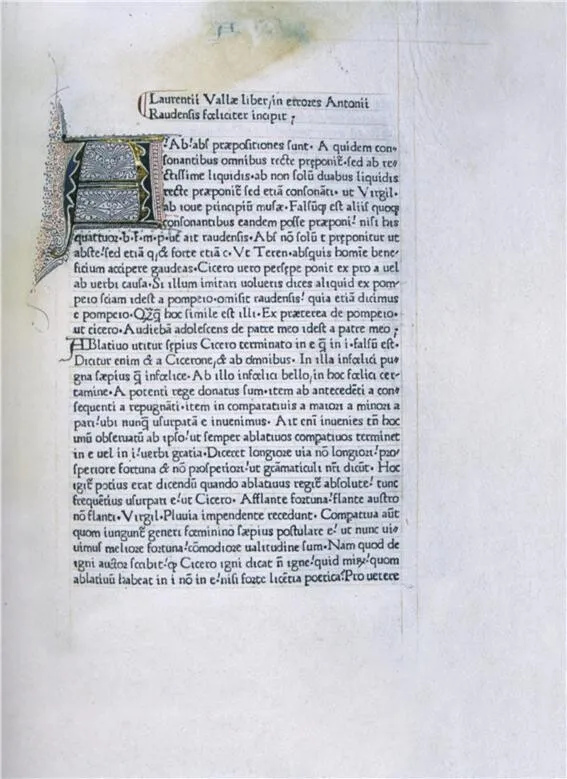 Laurentii Vallæ liber/in errores Antonii
Raudensis fœliciter incipit ;
A'Ab'abſ præpoſitiones ſunt. A quidem con-
ſonantibus omnibus recte prẹponit̃·ſed ab re-
ctiſſime liquidis·ab non ſolũ duabus liquidis
recte præponit̃ ſed etiã conſonãti· ut Virgil·
ab ioue principiũ muſæ· Falſũq̃ eſt aliiſ quoq̃
conſonantibus eandem poſſe præponi' niſi his
quattuor·b·f·m·p·ut ait raudenſis· Abſ nõ ſolũ t prẹponitur ut
abſte'ſed etiã q/& forte etiã c· Vt Teren·abſquis homĩe bene-
ficium accipere gaudeas· Cicero uero perſẹpe ponit ex pro a uel
ab uerbi cauſa· Si illum imitari uolueris dices aliquid ex pom-
peio ſciam ideſt a pompeio·omiſit raudenſis' quia etiã dicimus
e pompeio· hoc ſimile eſt illi· Ex præterea de pompeio·
ut cicero· Audiebã adoleſcens de patre meo ideſt a patre meo ;
ABlatiuo utitur ſẹpius Cicero terminato in e q̃ in i·falſũ eſt·
Dicitur enim & a Cicerone/& ab omnibus· In illa infœlici pu-
gna ſæpius q̃ infœlice· Ab illo infœlici bello/in hoc fœlici cer-
tamine· A potenti rege donatus ſum·item ab antecedẽti a con-
ſequenti a repugnãti·item in comparatiuis a maiori a minori a
pari'ubi nunq̃ uſurpatã e inuenimus· Ait eni inuenies tñ hoc
unũ obſeruatũ ab ipſo'ut ſemper ablatiuos compatiuos terminet
in e uel in i'uerbi gratia· Diceret longiore uia nõ longiori'pro-
ſperiore fortuna & nõ proſperiori'ut grãmaticuli nr̃i dicũt· Hoc
igit̃ potius erat dicendũ quando ablatiuus regit̃ abſolute' tunc
frequẽtius uſurpari e'ut Cicero· Afflante fortuna'flante auſtro
nõ flanti· Virgil· Pluuia impendente recedunt· Compatiua aũt
quom iungunt̃ generi fœminino ſæpius poſtulare e' ut nunc ui-
uimus meliore fortuna'cõmodiore ualitudine ſum· Nam quod de
igni auctor ſcribit'q̃ Cicero igni dicat ñ igne'quid miꝝ'quom
ablatiuũ habeat in i nõ in e'niſi forte licẽtia poetica'Pro uetere